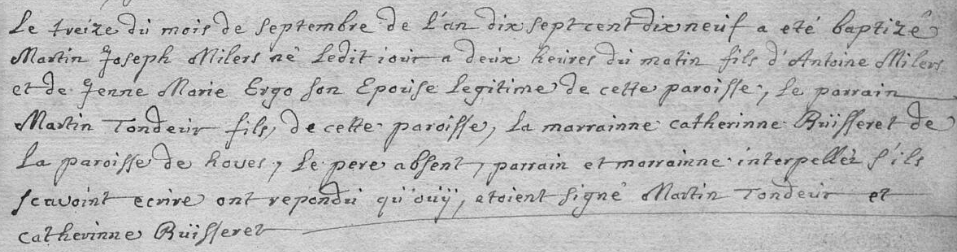 Le treize du mois de septembre de L'an dix sept cent dix neuf a eté baptizé
Martin Joseph Milers né Ledit iour a deux heures du matin fils d'Antoine Milers
et de Jenne Marie Ergo son Epouse Legitime de cette paroisse, Le parrain
Martin Tondeur fils, de cette paroisse, La marrainne catherinne Büisseret de
La paroisse de hoves, Le pere absent, parrain et marrainne interpelléz s'ils
scavoint ecrire ont repondu qu'ouÿ, etoient signé Martin Tondeur et
catherinne Büisseret